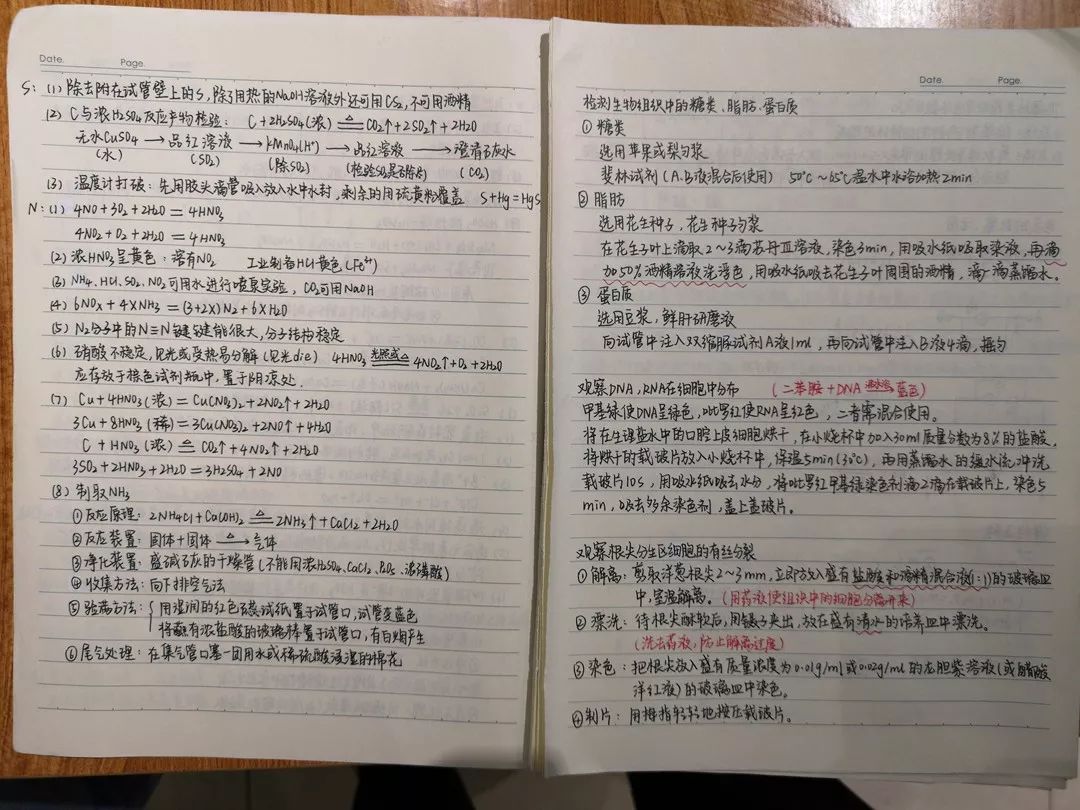 Date. Page.
S: (1) 除去附在试管壁上的S, 除了用热的NaOH溶液外还可用CS₂, 不可用酒精
(2) C与浓H₂SO₄反应产物检验: C+2H₂SO₄(浓) =△= CO₂↑+2SO₂↑+2H₂O
无水CuSO₄ → 品红溶液 → KMnO₄(H⁺) → 品红溶液 → 澄清石灰水
(水) (SO₂) (除SO₂) (检验SO₂是否除净) (CO₂)
(3) 温度计打破: 先用胶头滴管吸入放入水中水封, 剩余的用硫黄粉覆盖 S+Hg=HgS
N: (1) 4NO+3O₂+2H₂O=4HNO₃
4NO₂+O₂+2H₂O=4HNO₃
(2) 浓HNO₃呈黄色: 溶有NO₂ 工业制备HCl黄色(Fe³⁺)
(3) NH₃. HCl. SO₂. NO₂可用水进行喷泉实验, CO₂可用NaOH
(4) 6NOx+4xNH₃=(3+2x)N₂+6xH₂O
(5) N₂分子中的N≡N键键能很大, 分子结构稳定
(6) 硝酸不稳定, 见光或受热易分解(见光die) 4HNO₃ =光照或△= 4NO₂↑+O₂+2H₂O
应存放于棕色试剂瓶中, 置于阴凉处.
(7) Cu+4HNO₃(浓)=Cu(NO₃)₂+2NO₂↑+2H₂O
3Cu+8HNO₃(稀)=3Cu(NO₃)₂+2NO↑+4H₂O
C+HNO₃(浓) =△= CO₂↑+4NO₂↑+2H₂O
3SO₂+2HNO₃+2H₂O=3H₂SO₄+2NO
(8) 制取NH₃
①反应原理: 2NH₄Cl+Ca(OH)₂ =△= 2NH₃↑+CaCl₂+2H₂O
②反应装置: 固体+固体 —△→ 气体
③净化装置: 盛碱石灰的干燥管(不能用浓H₂SO₄、CaCl₂、P₂O₅、浓磷酸)
④收集方法: 向下排空气法
⑤验满方法: { 用湿润的红色石蕊试纸置于试管口, 试管变蓝色
将蘸有浓盐酸的玻璃棒置于试管口, 有白烟产生
⑥尾气处理: 在集气管口塞一团用水或稀硫酸浸湿的棉花
Date. Page.
检测生物组织中的糖类、脂肪、蛋白质
① 糖类
选用苹果或梨匀浆
斐林试剂(A.B液混合后使用) 50℃~65℃温水中水浴加热2min
② 脂肪
选用花生种子, 花生种子匀浆
在花生子叶上滴取2~3滴苏丹Ⅲ溶液, 染色3min, 用吸水纸吸取染液, 再滴
加50%酒精溶液洗浮色, 用吸水纸吸去花生子叶周围的酒精, 滴一滴蒸馏水.
③ 蛋白质
选用豆浆, 鲜肝研磨液
向试管中注入双缩脲试剂A液1ml, 再向试管中注入B液4滴, 摇匀
观察DNA, RNA在细胞中分布 (二苯胺+DNA 沸水浴→ 蓝色)
甲基绿使DNA呈绿色, 吡罗红使RNA呈红色, 二者需混合使用.
将在生理盐水中的口腔上皮细胞烘干, 在小烧杯中加入30ml质量分数为8%的盐酸,
将烘干的载玻片放入小烧杯中, 保温5min(30℃), 再用蒸馏水的缓水流冲洗
载玻片10s, 用吸水纸吸去水分, 将吡罗红甲基绿染色剂滴2滴在载玻片上, 染色5
min, 吸去多余染色剂, 盖上盖玻片.
观察根尖分生区细胞的有丝分裂
①解离: 剪取洋葱根尖2~3mm, 立即放入盛有盐酸和酒精混合液(1:1)的玻璃皿
中, 室温解离. (用药液使组织中的细胞分离开来)
②漂洗: 待根尖酥软后, 用镊子夹出, 放在盛有清水的培养皿中漂洗.
(洗去药液, 防止解离过度)
③染色: 把根尖放入盛有质量浓度为0.01g/ml或0.02g/ml的龙胆紫溶液(或醋酸
洋红液)的玻璃皿中染色.
④制片: 用拇指轻轻地按压载玻片.